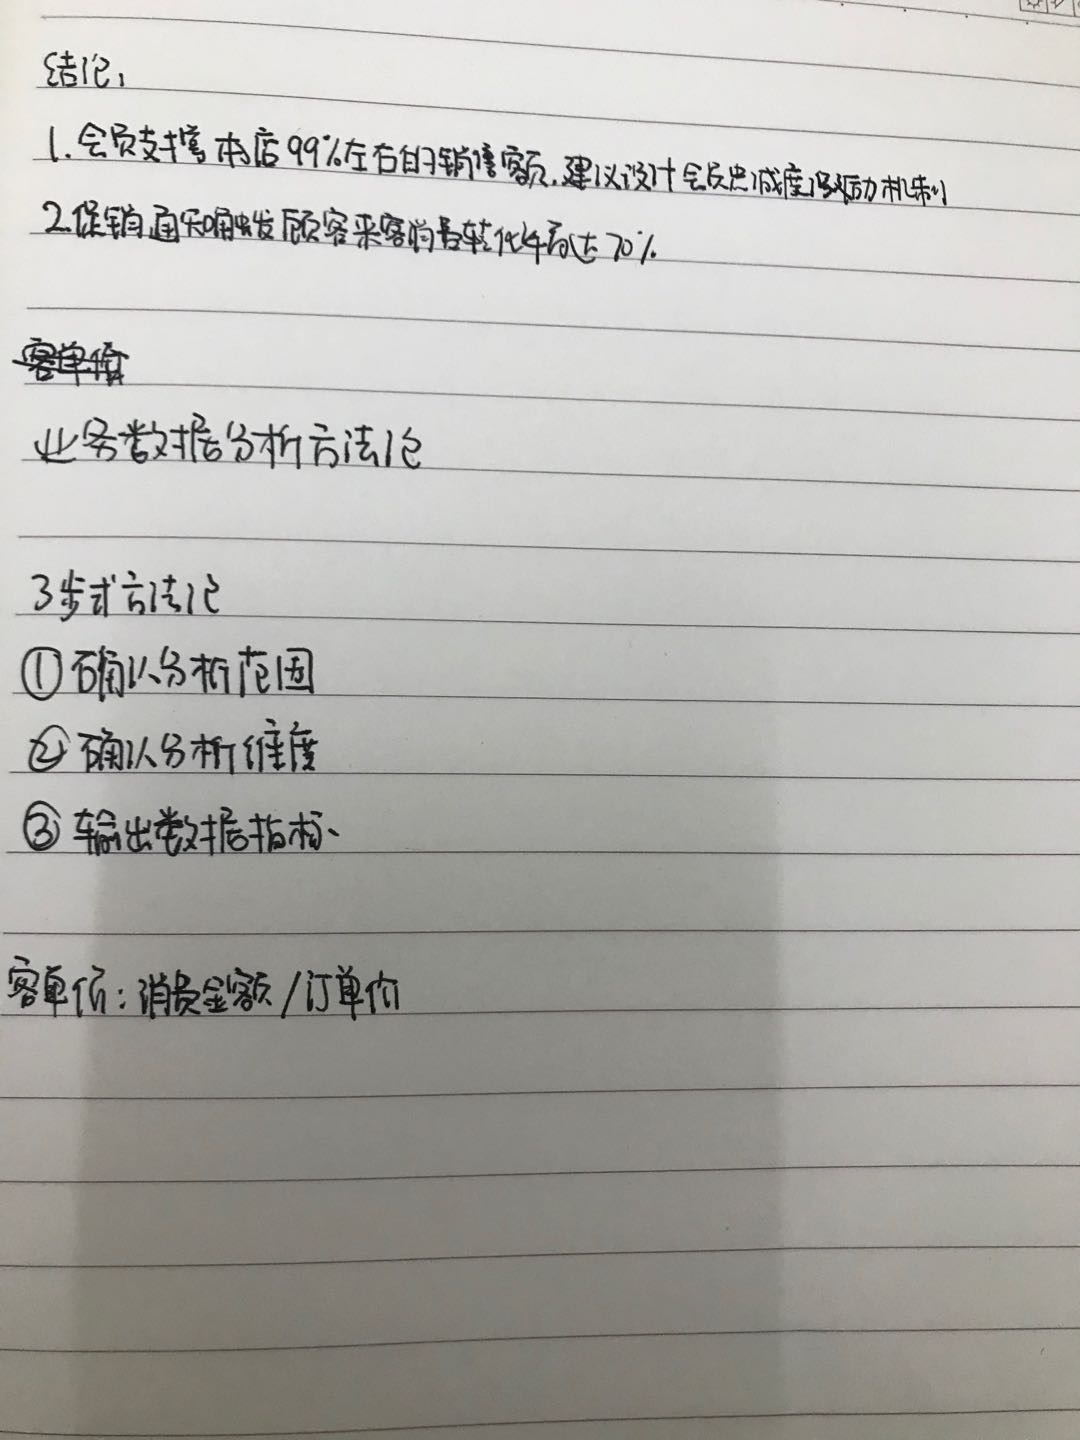 结论,
1.会员支撑本店99%左右的销售额,建议设计会员忠诚度激励机制
2.促销通知触发顾客来客消费转化率高达70%
客单价
业务数据分析方法论
3步式方法论
①确认分析范围
②确认分析维度
③输出数据指标、
客单价:消费金额/订单价